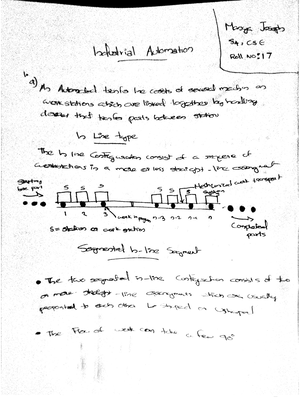 Manya Joseph
S4, CSE
Roll No: 17
Industrial Automation
a) An Automated transfer line consists of several machin or
workstations which are linked together by handling
devices that transfer parts between station
In Line type
The In line Configuration consist of a sequence of
workstations in a more or less straight-line arrangment
Starting
base parts
S S S S S S S
Mechanical work transport
system
1 2 3 work in progress n-3 n-2 n-1 n
Completed
parts
S = station or work station
Segmented In-line Segment
• The two segmented In-line Configuration consists of two
or more straight-line arrangments which are usually
to each other L-shaped or U shaped
• The Flow of work can take a few 90°